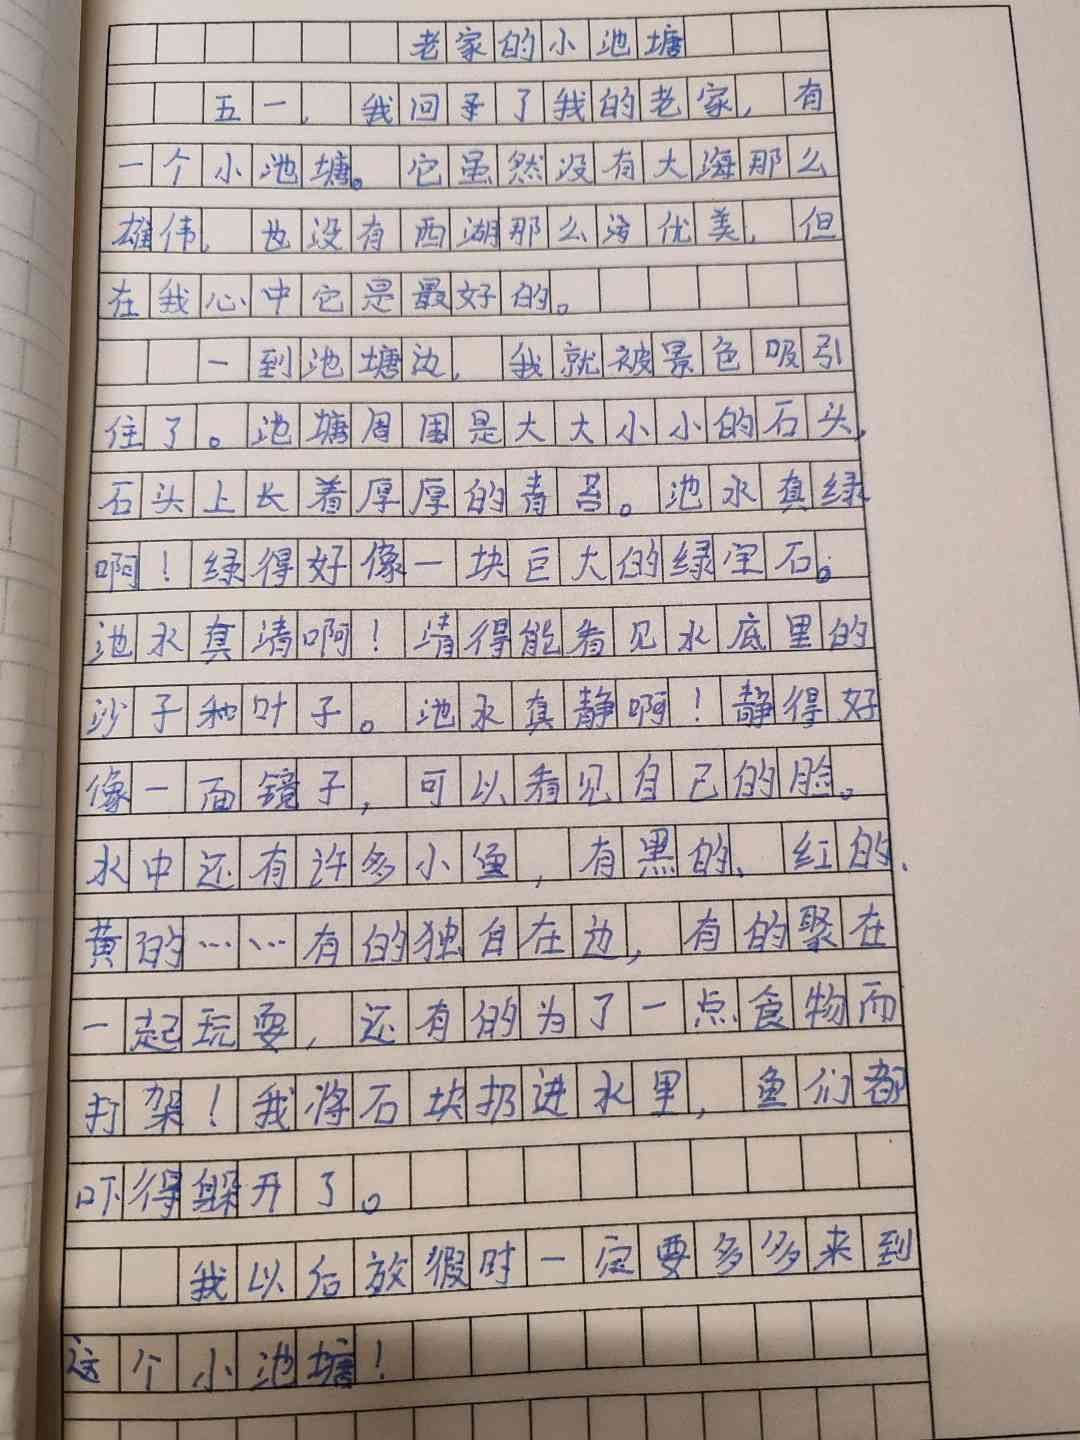 老家的小池塘
五一，我回到了我的老家，有
一个小池塘。它虽然没有大海那么
雄伟，也没有西湖那么优美，但
在我心中它是最好的。
一到池塘边，我就被景色吸引
住了。池塘周围是大大小小的石头，
石头上长着厚厚的青苔。池水真绿
啊！绿得好像一块巨大的绿宝石。
池水真清啊！清得能看见水底里的
沙子和叶子。池水真静啊！静得好
像一面镜子，可以看见自己的脸。
水中还有许多小鱼，有黑的、红的、
黄的……有的独自在边，有的聚在
一起玩耍，还有的为了一点食物而
打架！我将石块扔进水里，鱼们都
吓得躲开了。
我以后放假时一定要多多来到
这个小池塘！